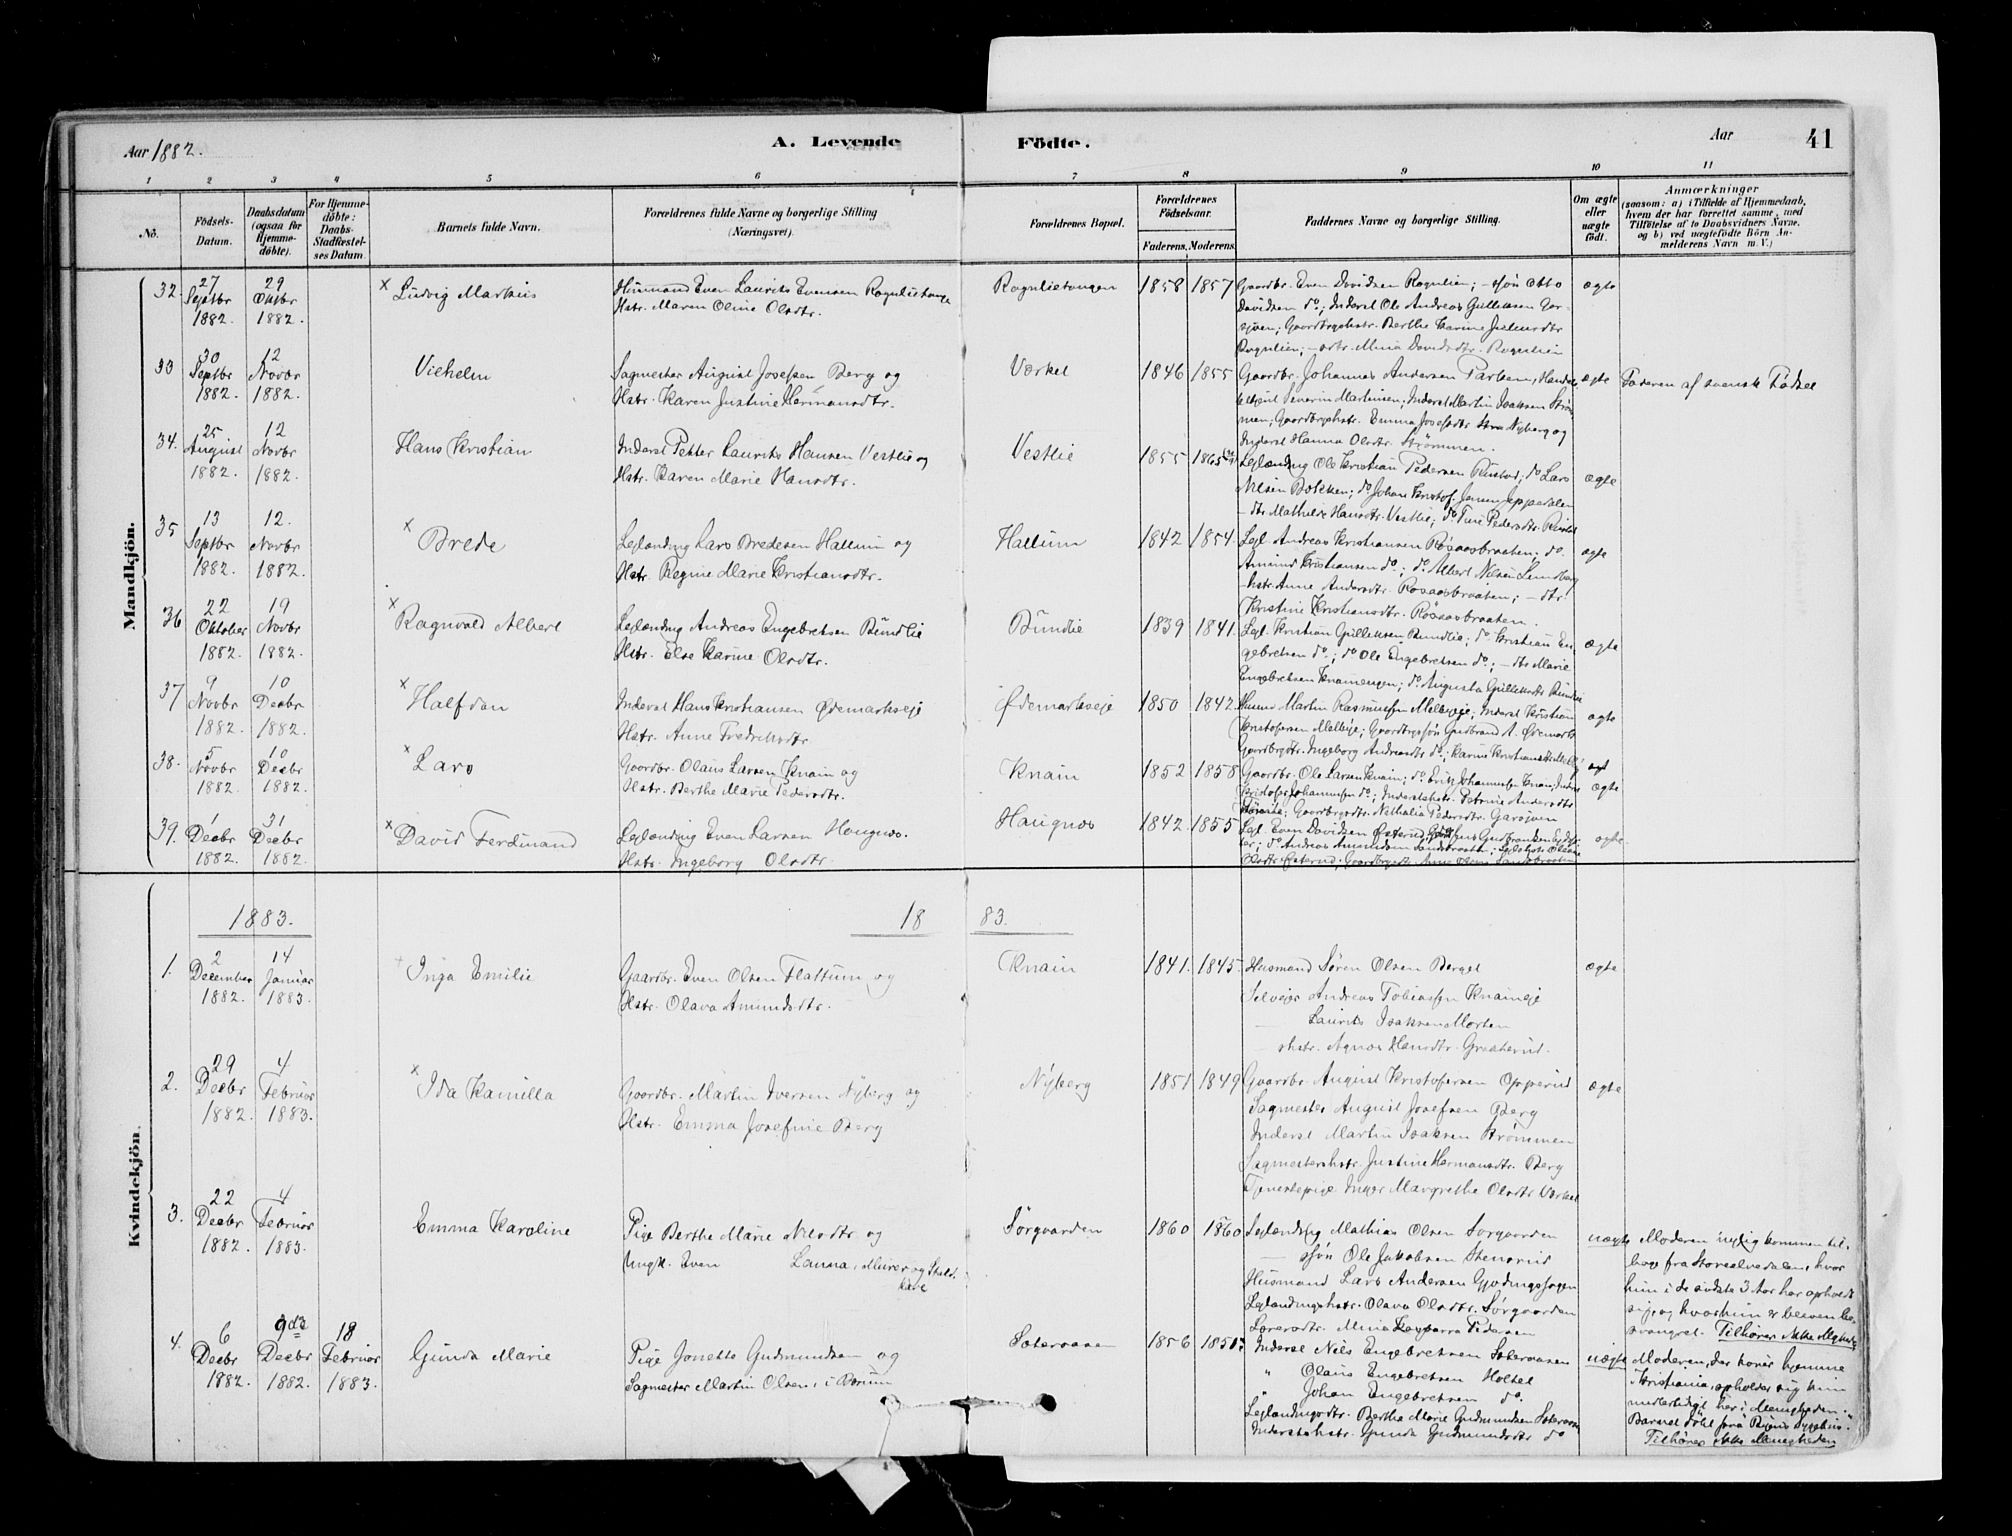 Aar 1882.
A. Levende
Födte.
Aar
41
1 2 3 4 5 6 7 8 9 10 11
No.
Födsels-Datum.
Daabsdatum (ogsaa for Hjemme-döbte).
For Hjemme-döbte: Daabs-Stadfæstel-ses Datum.
Barnets fulde Navn.
Forældrenes fulde Navne og borgerlige Stilling (Næringsvei).
Forældrenes Bopæl.
Forældrenes Födselsaar.
Faderens. Moderens.
Faddernes Navne og borgerlige Stilling.
Om ægte eller uægte födt.
Anmærkninger
(saasom: a) i Tilfælde af Hjemmedaab,
hvem der har forrettet samme, med
Tilföielse af to Daabsvidners Navne,
og b) ved uægtefödte Börn An-
melderens Navn m. V.)
Mandkjön.
32. 27 Septbr 1882. 29 Oktbr 1882.
× Ludvig Markus
Husmand Even Laurits Evensen Rognlietangen
Hstr. Maren Oline Olsdtr.
Rognlietangen 1858 1857
Gaardbr. Even Davidsen Rognlien; - søn Otto
Davidsen do; Inderst Ole Andreas Gulliksen Gar-
sjøen; Gaardbrgshstr. Berthe Karine
Rognlien; - Mina Davidsdtr. Rognlien
ægte
33 30 Septbr 1882. 12 Novbr 1882.
Vilhelm
Sagmester August Josefsen Berg og
Hstr. Karen Justine Hermansdtr.
Værket 1846 1855
Gaardbr. Johannes Andersen
Severin Martinsen; Inderst Martin Isaksen Strøm-
men; Gaardbrgshstr. Emma Josefsdtr. Nyberg og
Inderst Hanna Olsdtr. Strømmen.
ægte
Faderen af svensk Fødsel
34. 25 August 1882. 12 Novbr 1882.
Hans Kristian
Inderst Petter Laurits Hansen Vestlie og
Hstr. Karen Marie Hansdtr.
Vestlie 1855 1865
Leilænding Ole Kristian Pedersen Rustad; do Lars
Nilsen Bækken; do Johan Kristof. Jansen
- dtr. Mathilde Hansdtr. Vestlie; do Pedersdtr. Rustad
ægte
35 13 Septbr 1882. 12. Novbr 1882.
× Brede
Leilænding Lars Bredesen Hallum og
Hstr. Regine Marie Kristiansdtr.
Hallum 1842 1854.
Leil. Andreas Kristiansen Røsaasbraaten; do.
Amund Kristiansen do; do Albert Nilsen Lundberg
- hstr. Anne Andersdtr. Røsaasbraaten; - dtr.
Kristine Kristiansdtr. Røsaasbraaten.
ægte
36 22 Oktober 1882. 19 Novbr 1882.
× Ragnvald Albert
Leilænding Andreas Engebretsen Bundlie
Hstr. Else Karine Olsdtr.
Bundlie 1839 1841.
Leil. Kristian Gulliksen Bundlie; do Kristian En-
gebretsen do; do Ole Engebretsen do; - dtr. Marie
Engebretsen; do Augusta Gulliksdtr. Bundlie
ægte
37 9 Novbr 1882. 10 Decbr 1882.
× Halfdan
Inderst Hans Kristiansen Ødemarkseje
Hstr. Anne Fredriksdtr.
Ødemarkseje 1850 1842.
Martin Rasmussen Melbyeje; Inderst Kristian
Kristofersen Melbyeje; Gaardbrgssøn Gudbrand A. Ødemark
Gaardbrgsdtr. Ingeborg Andreasdtr. do;
ægte
38. 5 Novbr 1882. 10 Decbr 1882.
× Lars
Gaardbr. Olaus Larsen Knain og
Hstr. Berthe Marie Pedersdtr.
Knain 1852 1858
Gaardbr. Ole Larsen Knain; do. Erik Johannessen Knain;
Kristofer Johannessen do; Inderstshstr. Petrine Andersdtr
Gaardbrgsdtr. Nathalia Pedersdtr. Garsjøen
ægte
39. 1 Decbr 1882. 31 Decbr 1882.
× David Ferdinand
Leilænding Even Larsen Haugnæs.
Hstr. Ingeborg Olsdtr.
Haugnæs 1842. 1855
Leil. Even Davidsen Østerud;
ægte
1883.
18 83.
Kvindekjön.
1. 2 December 1882. 14 Januar 1883.
Inga Emilie
Gaardbr. Even Olsen Flattum og
Hstr. Olava Amundsdtr.
Knain 1841. 1845.
Husmand Søren Olsen Berget
Selvejer Andreas Tobiassen Knaineje
Laurits Isaksen Morten
- shstr. Agnes Hansdtr. Græsterud.
ægte
2. 29 Decbr 1882. 4 Februar 1883.
× Ida Kamilla
Gaardbr. Martin Iversen Nyberg og
Hstr. Emma Josefine Berg
Nyberg 1851 1849
Gaardbr. August Kristofersen Opperud
Sagmester August Josefsen Berg
Inderst Martin Isaksen Strømmen
Sagmestershstr. Justine Hermansdtr. Berg
Tjenestepige Inger Margrethe Olsdtr. Værket
ægte
3. 22 Decbr 1882. 4 Februar 1883.
Emma Karoline
Pige Berthe Marie Nilsdtr og
Ungk. Even Launa, Murer og
Sørgaarden 1860 1860
Leilænding Mathias Olsen Sørgaarden
- søn Ole Jakobsen Stensrud
Husmand Lars Andersen
Leilændingshstr. Olava Olsdtr. Sørgaarden
Lærersdtr. Mina Pedersen
uægte
Moderen nylig kommen til-
bage fra Storeelvedalen, hvor
hun i de sidste 3 Aar har opholdt
sig, og hvor hun er bleven be-
svangret. Tilhører ikke Mghd.
4. 6 Decbr 1882. 9de Decbr 1882. 18 Februar 1883.
Gunda Marie
Pige Jonette Gudmundsen og
Sagmester Martin Olsen, i Bærum
Sæteraasen 1856 1851?
Inderst Nils Engebretsen Sæteraasen
" Olaus Engebretsen Holtet
" Johan Engebretsen do.
Leilændingsdtr. Berthe Marie Gudmundsen Sæteraasen
Inderstshstr. Gunda Gudmundsdtr do
uægte
Moderen, der hører hjemme
i Kristiania, opholder sig kun
midlertidigt her i Menigheden.
Barnet født paa Byens Sygehus.
Tilhører ikke Menigheden